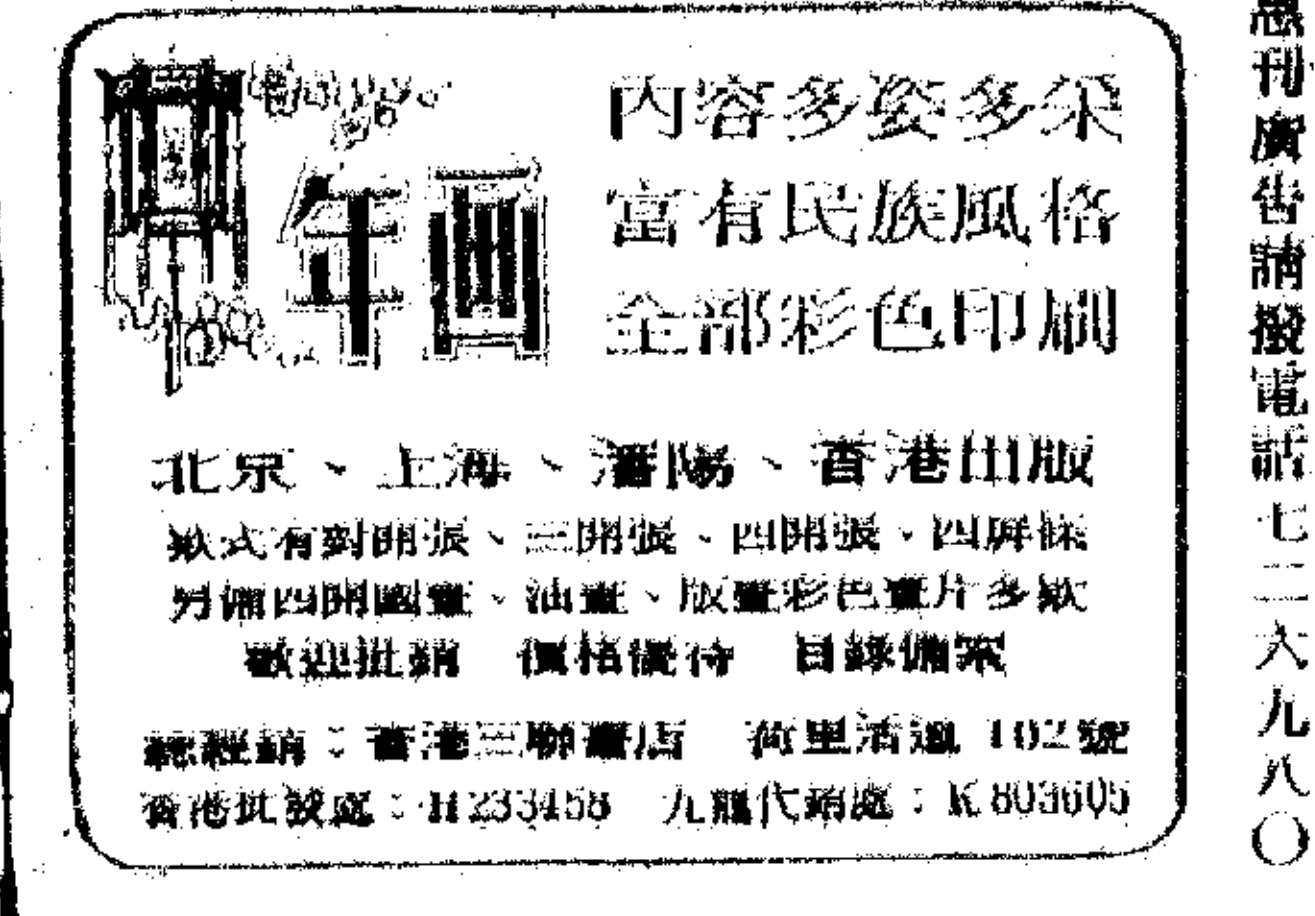 年畫
內容多姿多采
富有民族風格
全部彩色印刷
北京、上海、瀋陽、香港出版
欵式有對開張、三開張、四開張、四屏條
另備四開國畫、油畫、版畫彩色畫片多欵
歡迎批銷 價格優待 目錄備索
總經銷：香港三聯書店 荷里活道 102號
香港批發處：H 233458 九龍代銷處：K 803605
刊廣告請撥電話七二六九八〇